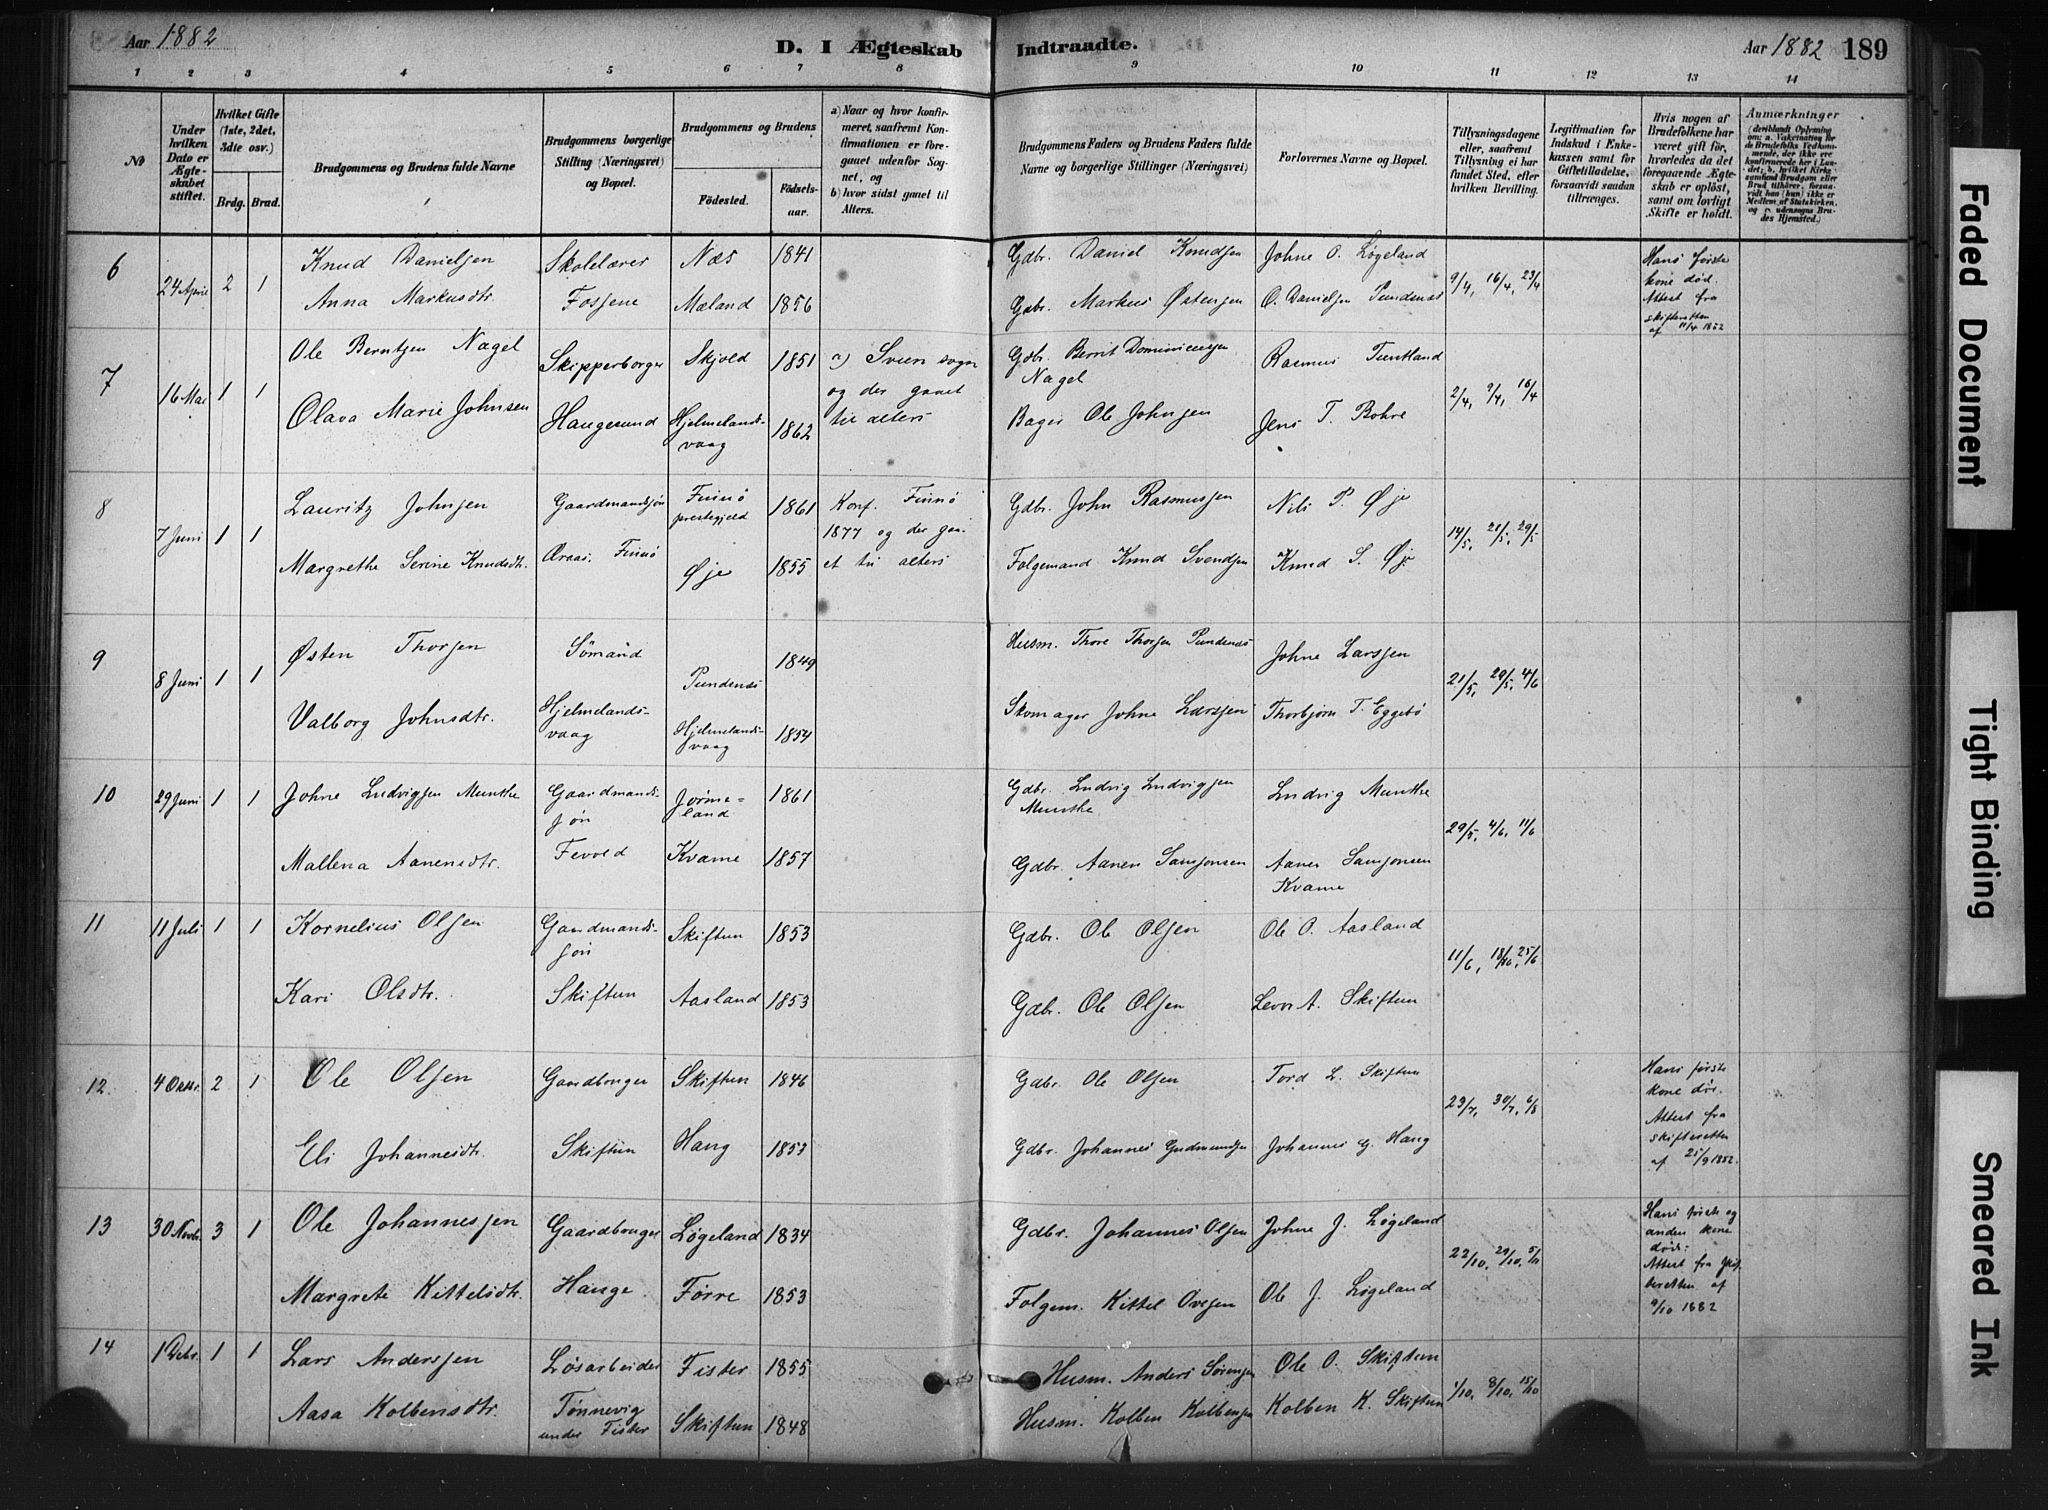 Aar 1882
D. I Ægteskab Indtraadte.
Aar 1882 189
1 2 3 4 5 6 7 8 9 10 11 12 13 14
No
Under hvilken Dato er Ægteskabet stiftet.
Hvilket Gifte (1ste, 2det, 3die osv.)
Brdg. Brud.
Brudgommens og Brudens fulde Navne
Brudgommens borgerlige Stilling (Næringsvei) og Bopæl.
Brudgommens og Brudens
Födested.
Födselsaar.
a) Naar og hvor konfirmeret, saafremt Konfirmationen er foregaaet udenfor Sognet, og
b) hvor sidst gaaet til Alters.
Brudgommens Faders og Brudens Faders fulde Navne og borgerlige Stillinger (Næringsvei)
Forlovernes Navne og Bopæl.
Tillysningsdagene eller, saafremt Tillysning ei har fundet Sted, efter hvilken Bevilling.
Legitimation for Indskud i Enkekassen samt for Giftetilladelse, forsaavidt saadan tiltrænges.
Hvis nogen af Brudefolkene har været gift för, hvorledes da det foregaaende Ægteskab er oplöst, samt om lovligt Skifte er holdt.
Anmærkninger
6 24 April 2 1
Knud Danielsen
Anna Markusdtr.
Skolelærer
Fosjene
Næs 1841
Mæland 1856
Gdbr. Daniel Knudsen
Gdbr. Markus Østensen
Johne O. Løgeland
O. Danielsen Pundenæs
9/4, 16/4, 23/4
Hans første kone død. Attest fra skifteretten af 11/4 1882
7 16 Mai 1 1
Ole Berntsen Nagel
Olava Marie Johnsen
Skipperborger
Haugesund
Skjold 1851
Hjelmelandsvaag 1862
a) Sveen sogn og der gaaet til alters
Gdbr. Bernt Nagel
Bager Ole Johnsen
Rasmus Tuntland
Jens T. Bohre
2/4, 9/4, 16/4
8 7 Juni 1 1
Lauritz Johnsen
Margrethe Serine Knudsdtr.
Gaardmandsjøn
Aaraas. Finnø
Finnø prestegjeld 1861
Øje 1855
Konf. Finnø 1877 og der gaaet til alters
Gdbr. John Rasmussen
Folgemand Knud Svendsen
Nils P. Øje
Knud S. Øje
14/5, 21/5, 29/5
9 8 Juni 1 1
Østen Thorsen
Valborg Johnsdtr.
Sømand
Hjelmelandsvaag
Pundenæs 1849
Hjelmelandsvaag 1854
Husm. Thore Thorsen Pundenæs
Skomager Johne Larsen
Johne Larsen
Thorbjørn T. Eggebø
21/5, 29/5, 4/6
10 29 Juni 1 1
Johne Ludvigsen Munthe
Mallena Aanensdtr.
Gaardmandsjøn
Fevold
Jørmeland 1861
Kvame 1857
Gdbr. Ludvig Ludvigsen Munthe
Gdbr. Aanen Samsonsen
Ludvig Munthe
Aanen Samsonsen Kvame
29/5, 4/6, 11/6
11 11 Juli 1 1
Kornelius Olsen
Kari Olsdtr.
Gaardmandsjøn
Skiftun
Skiftun 1853
Aasland 1853
Gdbr. Ole Olsen
Gdbr. Ole Olsen
Ole O. Aasland
Levor A. Skiftun
11/6, 18/6, 25/6
12 4 Oktr. 2 1
Ole Olsen
Eli Johannesdtr.
Gaardbruger
Skiftun
Skiftun 1846
Haug 1853
Gdbr. Ole Olsen
Gdbr. Johannes Gudmundsen
Tord L. Skiftun
Johannes G. Haug
23/7, 30/7, 6/8
Hans første kone død. Attest fra skifteretten af 25/9 1882.
13 30 Novbr. 3 1
Ole Johannesen
Margrete Kittelsdtr.
Gaardbruger
Hauge.
Løgeland 1834
Førre 1853
Gdbr. Johannes Olsen
Folgem. Kittel Ovesen
Johne J. Løgeland
Ole J. Løgeland
22/10, 29/10, 5/11
Hans første og anden kone død: Attest fra skifteretten af 9/10 1882
14 1 Debr. 1 1
Lars Andersen
Aasa Kolbensdtr.
Løsarbeider
Tønnevig under Fister
Fister 1855
Skiftun 1848
Husm. Anders Sørensen
Husm. Kolben Kolbensen
Ole O. Skiftun
Kolben K. Skiftun
1/10, 8/10, 15/10
Faded Document
Tight Binding
Smeared Ink